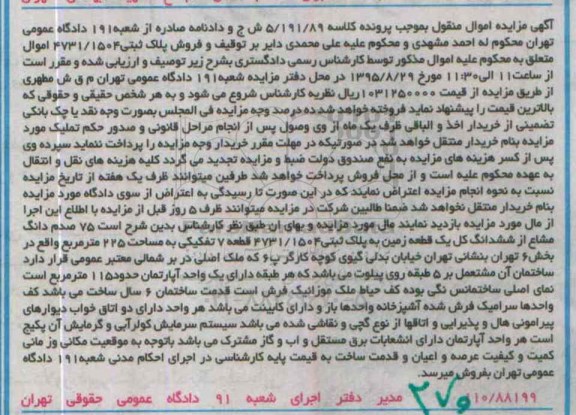 آگهی مزایده اموال منقول بموجب پرونده کلاسه ۵/۱۹۱/۸۹ ش ج و دادنامه صادره از شعبه۱۹۱ دادگاه عمومی
تهران محکوم له احمد مشهدی و محکوم علیه علی محمدی دایر بر توقیف و فروش پلاک ثبتی۴۷۳۱/۱۵۰۴ اموال
متعلق به محکوم علیه اموال مذکور توسط کارشناس رسمی دادگستری بشرح زیر توصیف و ارزیابی شده و مقرر است
از ساعت۱۱ الی۱۱:۳۰ مورخ ۱۳۹۵/۸/۲۹ در محل دفتر مزایده شعبه۱۹۱ دادگاه عمومی تهران م ق ش مطهری
از طریق مزایده از قیمت ۱۰۳۱۲۵۰۰۰۰ریال نظریه کارشناس شروع می شود و به هر شخص حقیقی و حقوقی که
بالاترین قیمت را پیشنهاد نماید فروخته خواهد شد ده درصد وجه مزایده فی المجلس بصورت وجه نقد یا چک بانکی
تضمینی از خریدار اخذ و الباقی ظرف یک ماه از وی وصول پس از انجام مراحل قانونی و صدور حکم تملیک مورد
مزایده بنام خریدار منتقل خواهد شد در صورتیکه در مهلت مقرر خریدار وجه مزایده را پرداخت ننماید سپرده وی
پس از کسر هزینه های مزایده به نفع صندوق دولت ضبط و مزایده تجدید می گردد کلیه هزینه های نقل و انتقال
به عهده محکوم علیه است و از محل فروش پرداخت خواهد شد طرفین میتوانند ظرف یک هفته از تاریخ مزایده
نسبت به نحوه انجام مزایده اعتراض نمایند که در این صورت تا رسیدگی به اعتراض از سوی دادگاه مورد مزایده
بنام خریدار منتقل نخواهد شد ضمنا طالبین شرکت در مزایده میتوانند ظرف ۵ روز قبل از مزایده با اطلاع این اجرا
از مال مورد مزایده بازدید نمایند مال مورد مزایده و بهای ان طبق نظر کارشناس بدین شرح است ۷۵ صدم دانگ
مشاع از ششدانگ کل یک قطعه زمین به پلاک ثبتی۴۷۳۱/۱۵۰۴ قطعه ۷ تفکیکی به مساحت ۲۲۵ مترمربع واقع در
بخش۶ تهران بنشانی تهران خیابان بدلی گیوی کوچه کارگر پ۶ که ملک اصلی در بر شمالی معتبر عمومی قرار دارد
ساختمان آن مشتمل بر ۵ طبقه روی پیلوت می باشد که هر طبقه دارای یک واحد آپارتمان حدود۱۱۵ مترمربع است
نمای اصلی ساختمانس نگی بوده کف حیاط ملک موزائیک فرش است قدمت ساختمان ۶ سال ساخت می باشد کف
واحدها سرامیک فرش شده آشپزخانه واحدها باز و دارای کابینت می باشد هر واحد دارای دو اتاق خواب دیوارهای
پیرامونی هال و پذیرایی و اتاقها از نوع گچی و نقاشی شده می باشد سیستم سرمایش کولرآبی و گرمایش آن پکیج
است هر واحد آپارتمان دارای انشعابات برق مستقل و اب و گاز مشترک می باشد باتوجه به موقعیت مکانی وز مانی
کمیت و کیفیت عرصه و اعیان و قدمت ساخت به قیمت پایه کارشناسی در اجرای احکام مدنی شعبه۱۹۱ دادگاه
عمومی تهران بفروش میرسد.
۱۱۰/۸۸۱۹۹ مدیر دفتر اجرای شعبه ۹۱ دادگاه عمومی حقوقی تهران